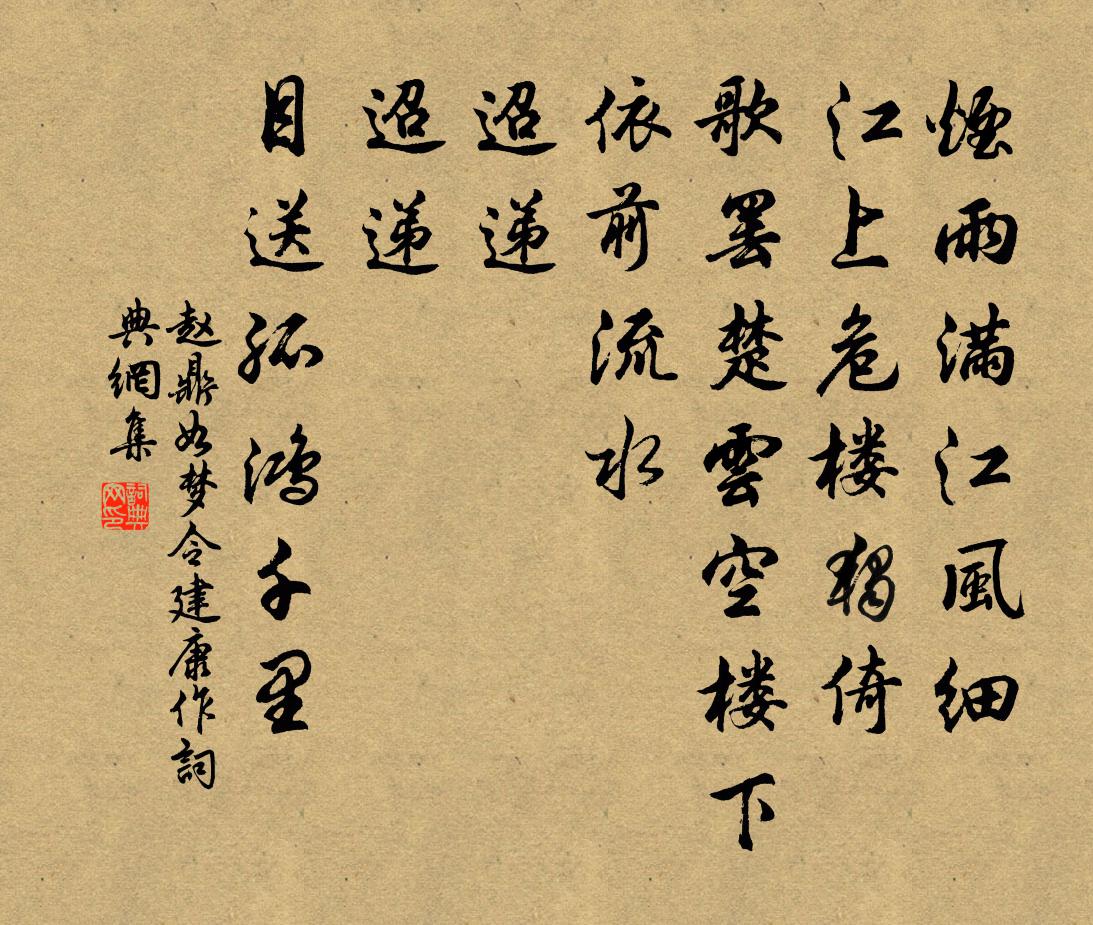 煙雨满江風细
江上危楼獨倚
歌罢楚雲空楼下
依前流水
迢递
迢递
目送孤鸿千里
赵鼎如梦令建康作詞
典網集
詞典网印